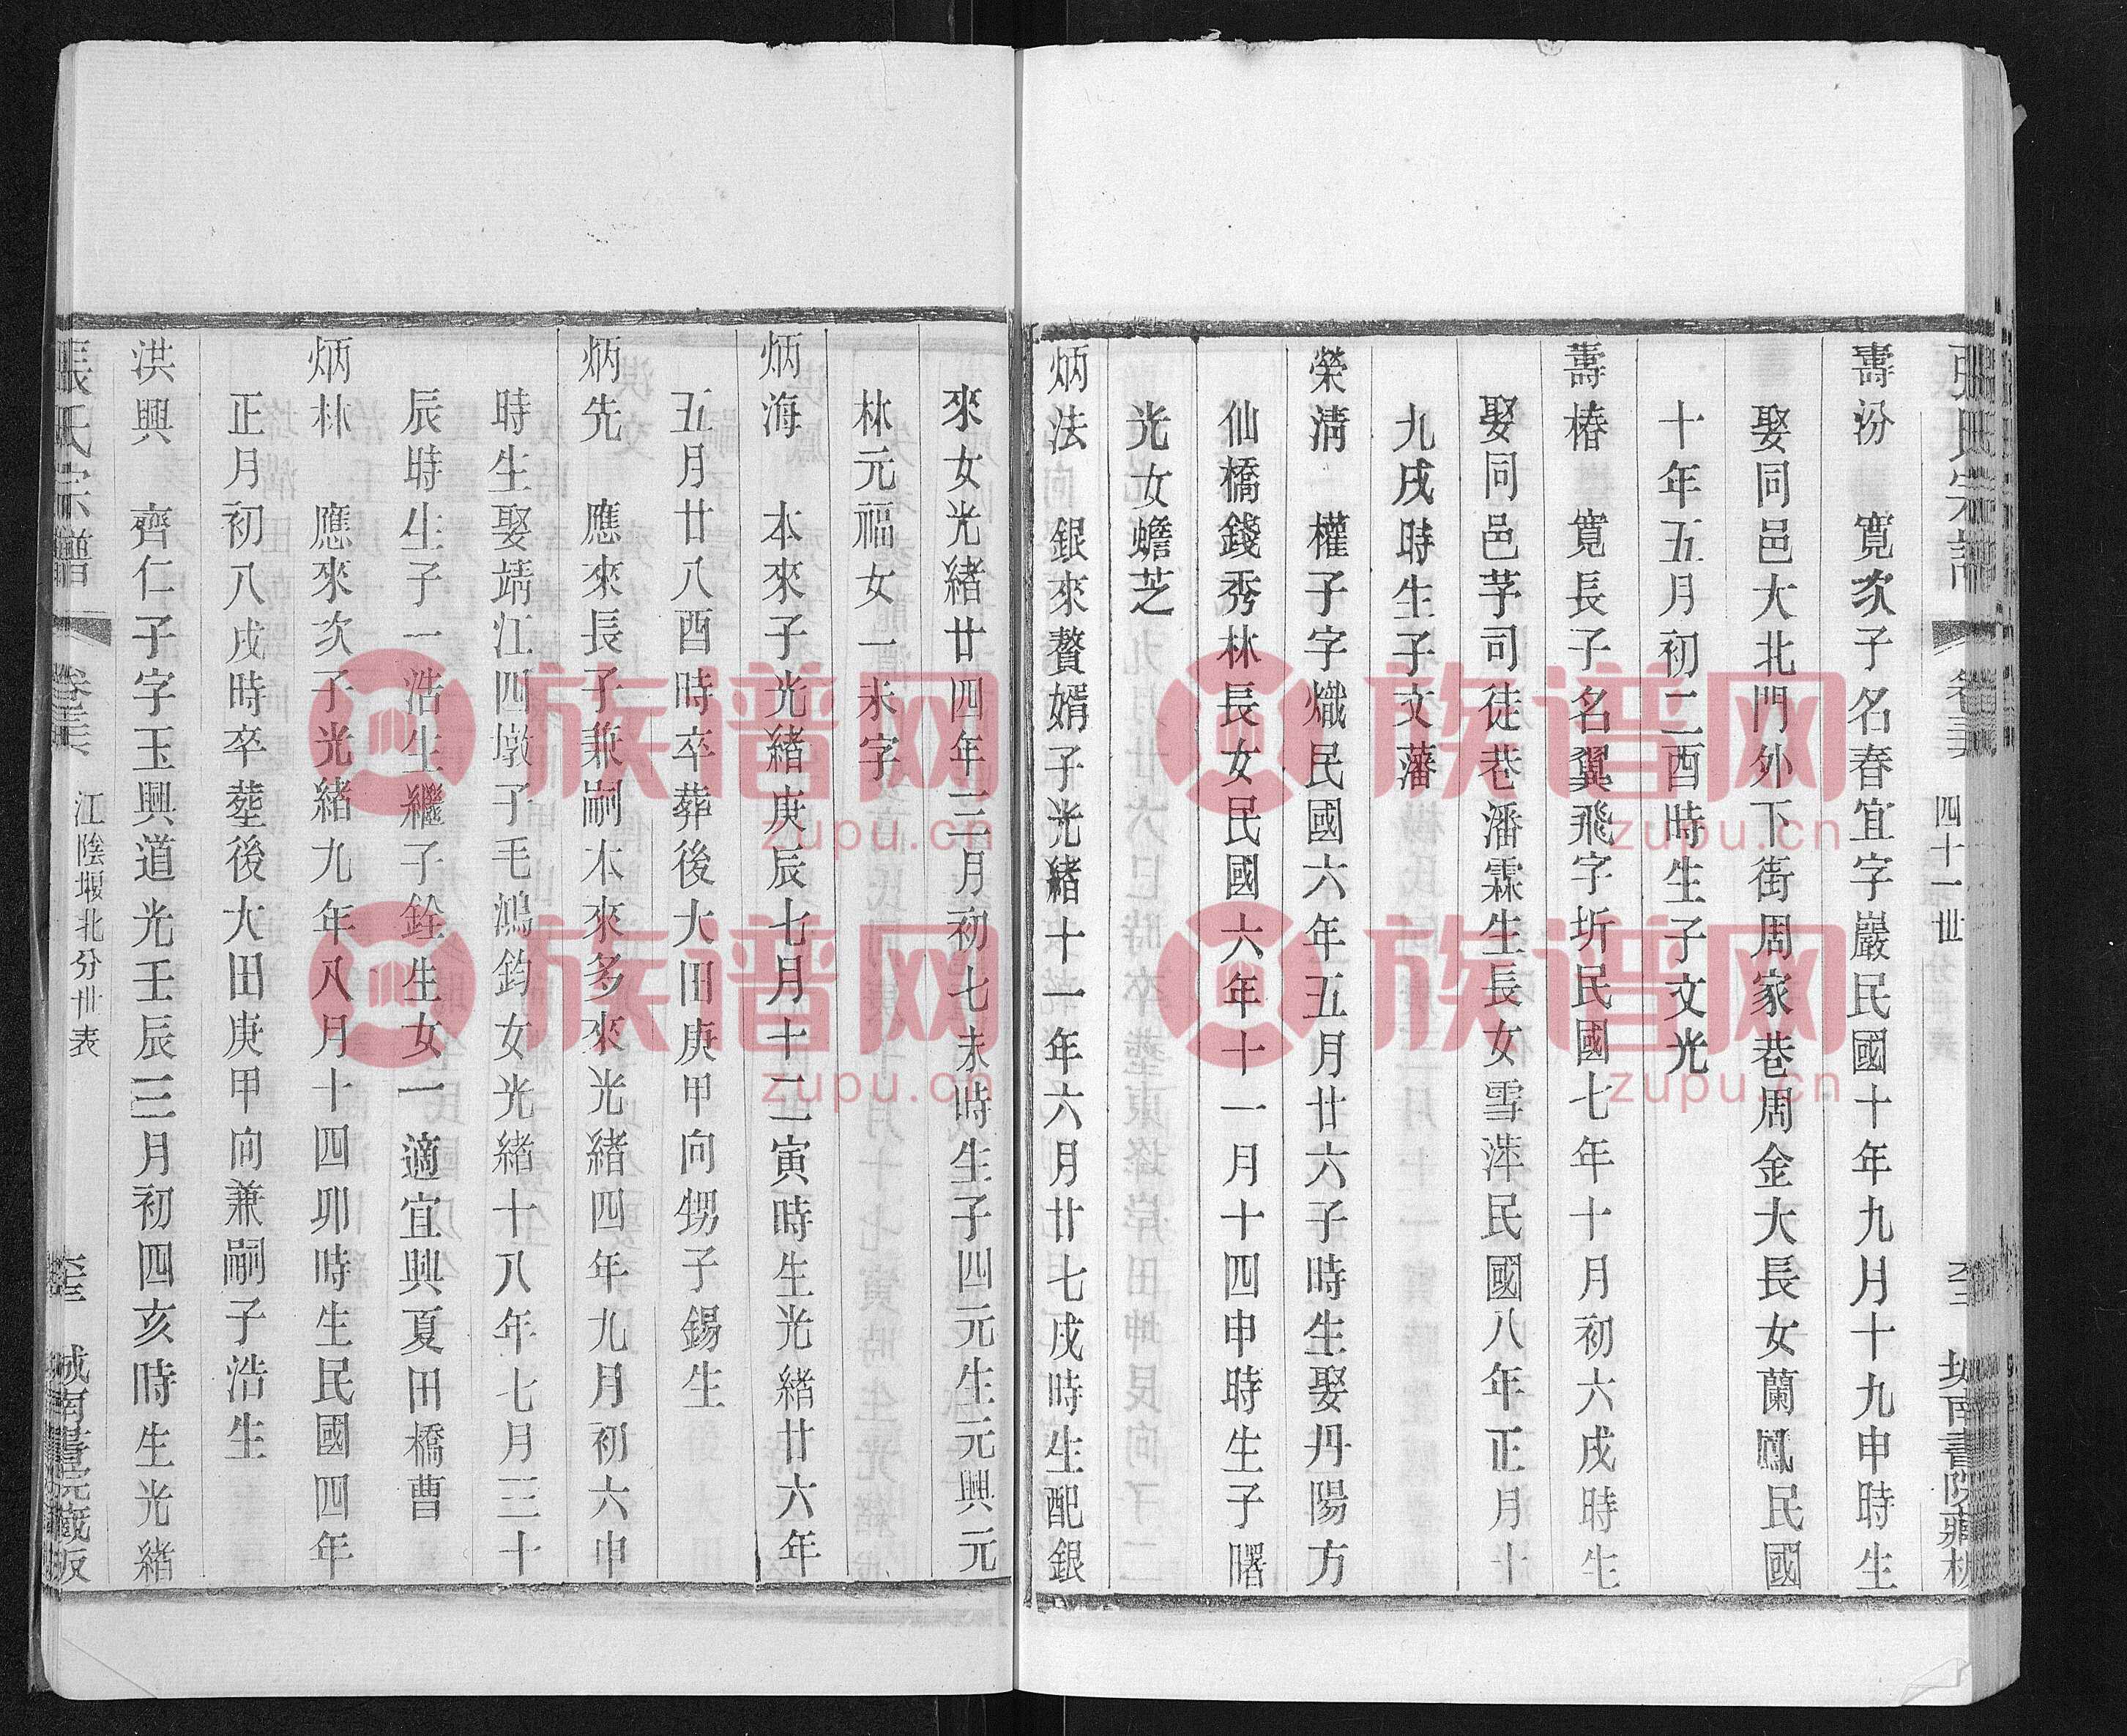 四十一世
壽汾 寬次子名春宜字嚴民國十年九月十九申時生
娶同邑大北門外下街周家巷周金大長女蘭鳳民國
十年五月初二酉時生子文光
壽椿 寬長子名翼飛字圻民國七年十月初六戌時生
娶同邑茅司徒巷潘霖生長女雪萍民國八年正月十
九戌時生子文藩
榮淸 權子字熾民國六年五月廿六子時生娶丹陽方
仙橋錢秀林長女民國六年十一月十四申時生子曙
光女蟾芝
炳法 銀來贅婿子光緒十一年六月廿七戌時生配銀
來女光緒廿四年三月初七未時生子四元生元興元
林元福女一未字
炳海 本來子光緒庚辰七月十二寅時生光緒廿六年
五月廿八酉時卒葬後大田庚甲向甥子錫生
炳先 應來長子兼嗣本來多來光緒四年九月初六申
時生娶靖江四墩子毛鴻鈞女光緒十八年七月三十
辰時生子一浩生繼子銓生女一適宜興夏田橋曹
炳林 應來次子光緒九年八月十四卯時生民國四年
正月初八戌時卒塟後大田庚甲向兼嗣子浩生
洪興 齊仁子字玉興道光壬辰三月初四亥時生光緒
張氏宗譜
江陰堰北分世表
城南書院藏板
族谱网
zupu.cn
族谱网
zupu.cn
族谱网
zupu.cn
族谱网
zupu.cn